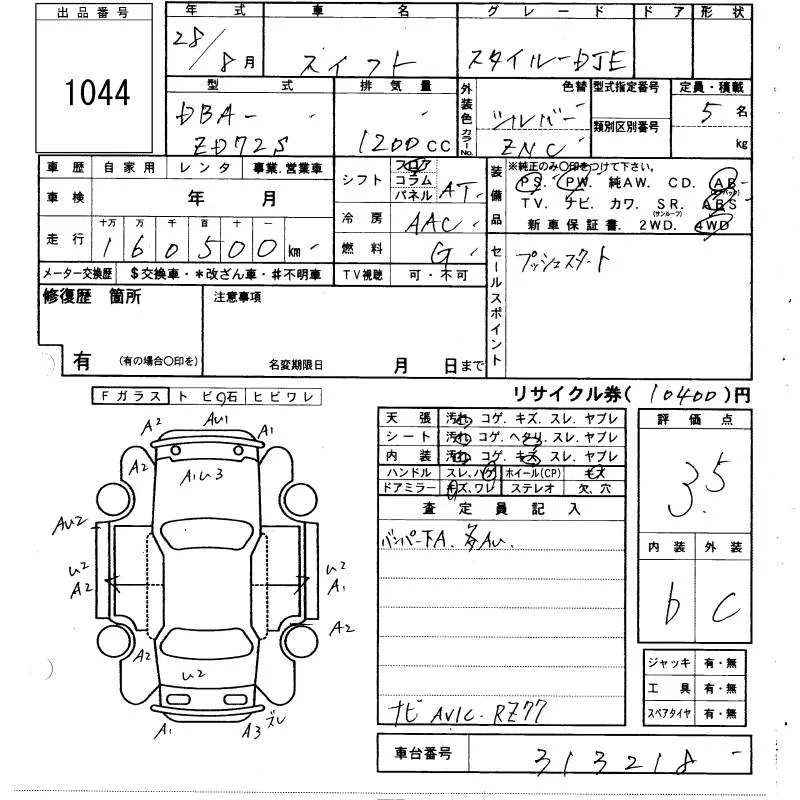 出品番号
1044
年式
28/8月
車名
スイフト
グレード
スタイルーDJE
ドア
形状
型式
DBA-
ZD72S
排気量
1200cc
外装色
シルバー
色替
カラーNo.
ZNC
型式指定番号
類別区別番号
定員・積載
5名
kg
車歴 自家用 レンタ 事業.営業車
車検 年 月
走行 十万 万 千 百 十
160500km
メーター交換歴 $交換車・*改ざん車・#不明車
シフト フロア コラム パネル AT
冷房 AAC
燃料 G
TV視聴 可・不可
装備品
※純正のみ〇印をつけて下さい。
PS. PW. 純AW. CD. AB
(エアバック)
TV. ナビ. カワ. SR. ABS
(サンルーフ)
新車保証書. 2WD. 4WD
セールスポイント
プッシュスタート
修復歴 箇所
有 (有の場合〇印を)
注意事項
名変期限日 月 日まで
リサイクル券(10400)円
Fガラス トビ石 ヒビワレ
A2 AU1 A1
A2 A1U3 A2
AU2
U2 A2
U2 A1
A2
A2 U2
A1 A3 ズレ
天張 汚れ.コゲ.キズ.スレ.ヤブレ
シート 汚れ.コゲ.ヘタリ.スレ.ヤブレ
内装 汚れ.コゲ.キズ.スレ.ヤブレ
ハンドル スレ.ハゲ ホイール(CP) キズ
ドアミラー キズ.ワレ ステレオ 欠.穴
査定員記入
バンパー下A. 各AU.
ナビ AVIC-RZ77
評価点
3.5
内装 外装
b C
ジャッキ 有・無
工具 有・無
スペアタイヤ 有・無
車台番号
313218